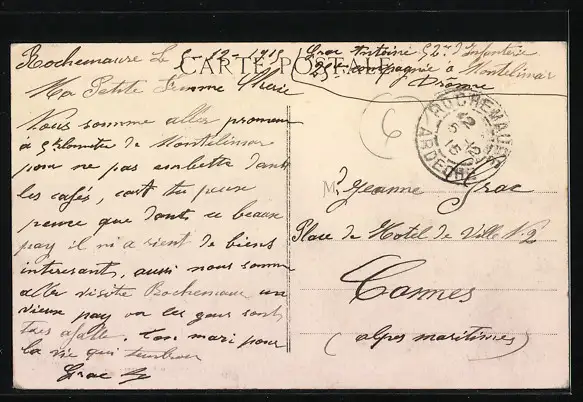 Rochemaure Le 5-12-1915
Grac Antoine 52me d'Infanterie
25e Compagnie à Montelimar
Drôme
CARTE POSTALE
Ma Petite Femme Cherie
Nous somme aller promener
à 5 kilometre de Montelimar
pour ne pas embette dans
les cafés, car tu peux
pence que dans ce beaux
pay il ni a rient de biens
interesants, aussi nous somme
aller visite Rochemaure un
vieux pay ou les gens sont
tres afable. ton mari pour
la vie qui
Grac
6
ROCHEMAURE
ARDECHE
12
15
M
Jeanne Grac
Place de Hotel de Ville N.2
Cannes
(alpes maritimes)